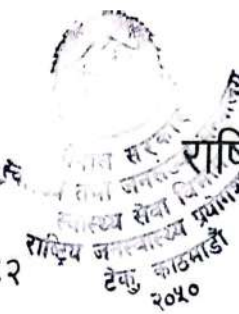 नेपाल सरकार
स्वास्थ्य तथा जनसंख्या
स्वास्थ्य सेवा विभाग
राष्ट्रिय जनस्वास्थ्य प्रयोगशाला
टेकु, काठमाडौं
२०५०
राष्ट्रि
२